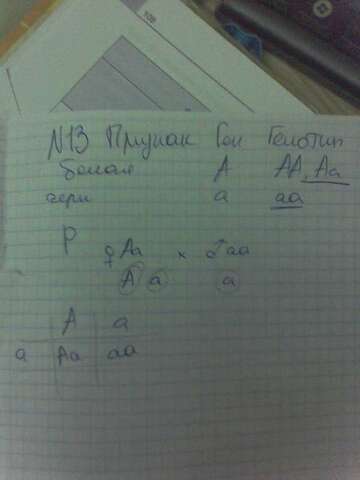 N13 Признак Ген Генотип
белая A AA, Aa
черн a aa
P ♀ Aa × ♂ aa
A a a
A a
a Aa aa